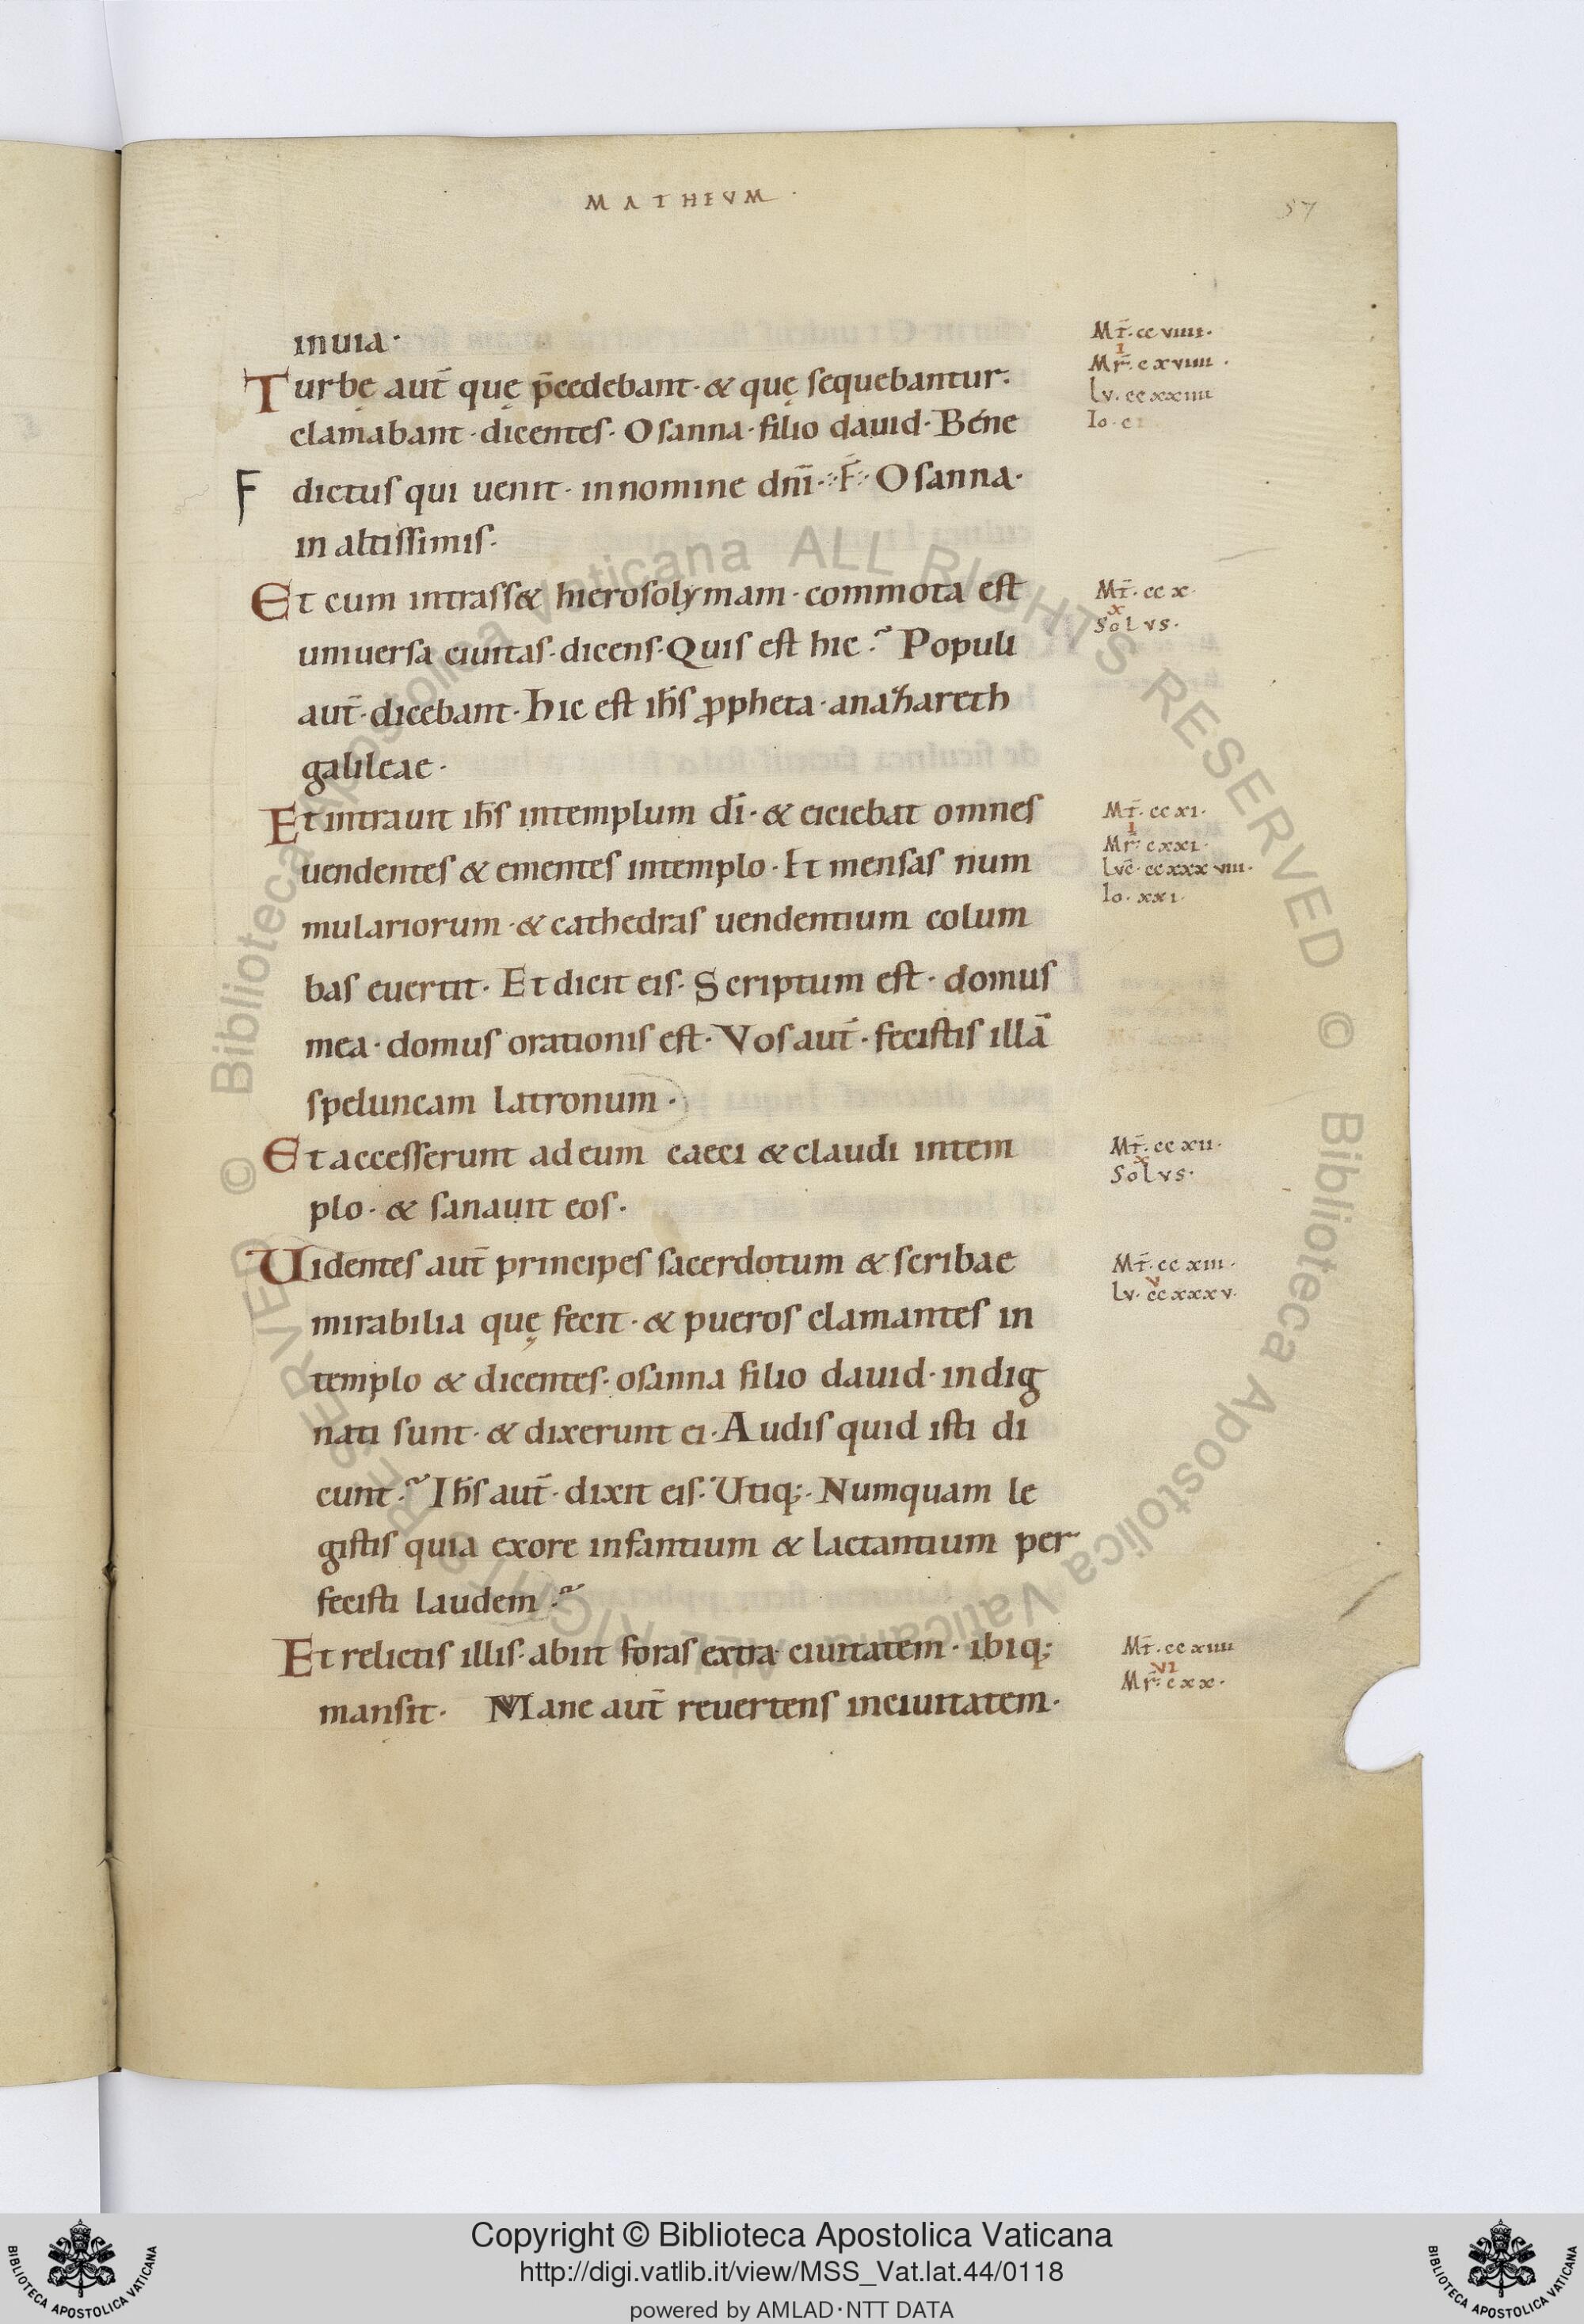 MATHEVM·
57
inuia·
Mt̄·cc viiii·
I
Mr̄·c xviiii·
Lv·cc xxiiii
Io·c
Turbę aut̄ quę p̄cedebant·& quę sequebantur·
clamabant·dicentes·Osanna·filio dauid·Béne
F dictus qui uenit·innomine dn̄i·F·Osanna·
in altissimis·
Et cum intrass& hierosolymam·commota est
Mt̄·cc x·
x
SoLvs·
uniuersa ciuitas·dicens·Quis est hic? Populi
aut̄·dicebant·hic est ih̄s ꝓpheta·anazareth
galileae·
Et intrauit ih̄s intemplum dī·& eiciebat omnes
Mt̄·cc xi·
I
Mr̄·c xxi·
Lvc̄·cc xxx viii·
Io·xxi·
uendentes & ementes intemplo·Et mensas num
mulariorum·& cathedras uendentium colum
bas euertit·Et dicit eis·Scriptum est·domus
mea·domus orationis est·Vos aut̄·fecistis illā
speluncam latronum·
Et accesserunt ad eum caeci & claudi intem
Mt̄·cc xii·
x
SoLvs·
plo·& sanauit eos·
Uidentes aut̄ principes sacerdotum & scribae
Mt̄·cc xiii·
v
Lv·cc xxxv·
mirabilia quę fecit·& pueros clamantes in
templo & dicentes·osanna filio dauid·indig
nati sunt·& dixerunt ei·Audis quid isti di
cunt? Ih̄s aut̄·dixit eis·Utiq;·Numquam le
gistis quia exore infantium & lactantium per
fecisti laudem?
Et relictis illis·abiit foras extra ciuitatem·ibiq;
Mt̄·cc xiiii
VI
Mr̄·c xx·
mansit· Mane aut̄ reuertens inciuitatem·
© Biblioteca Apostolica Vaticana ALL RIGHTS RESERVED © Biblioteca Apostolica Vaticana ALL RIGHTS RESERVED
BIBLIOTECA APOSTOLICA VATICANA
Copyright © Biblioteca Apostolica Vaticana
http://digi.vatlib.it/view/MSS_Vat.lat.44/0118
powered by AMLAD·NTT DATA
BIBLIOTECA APOSTOLICA VATICANA